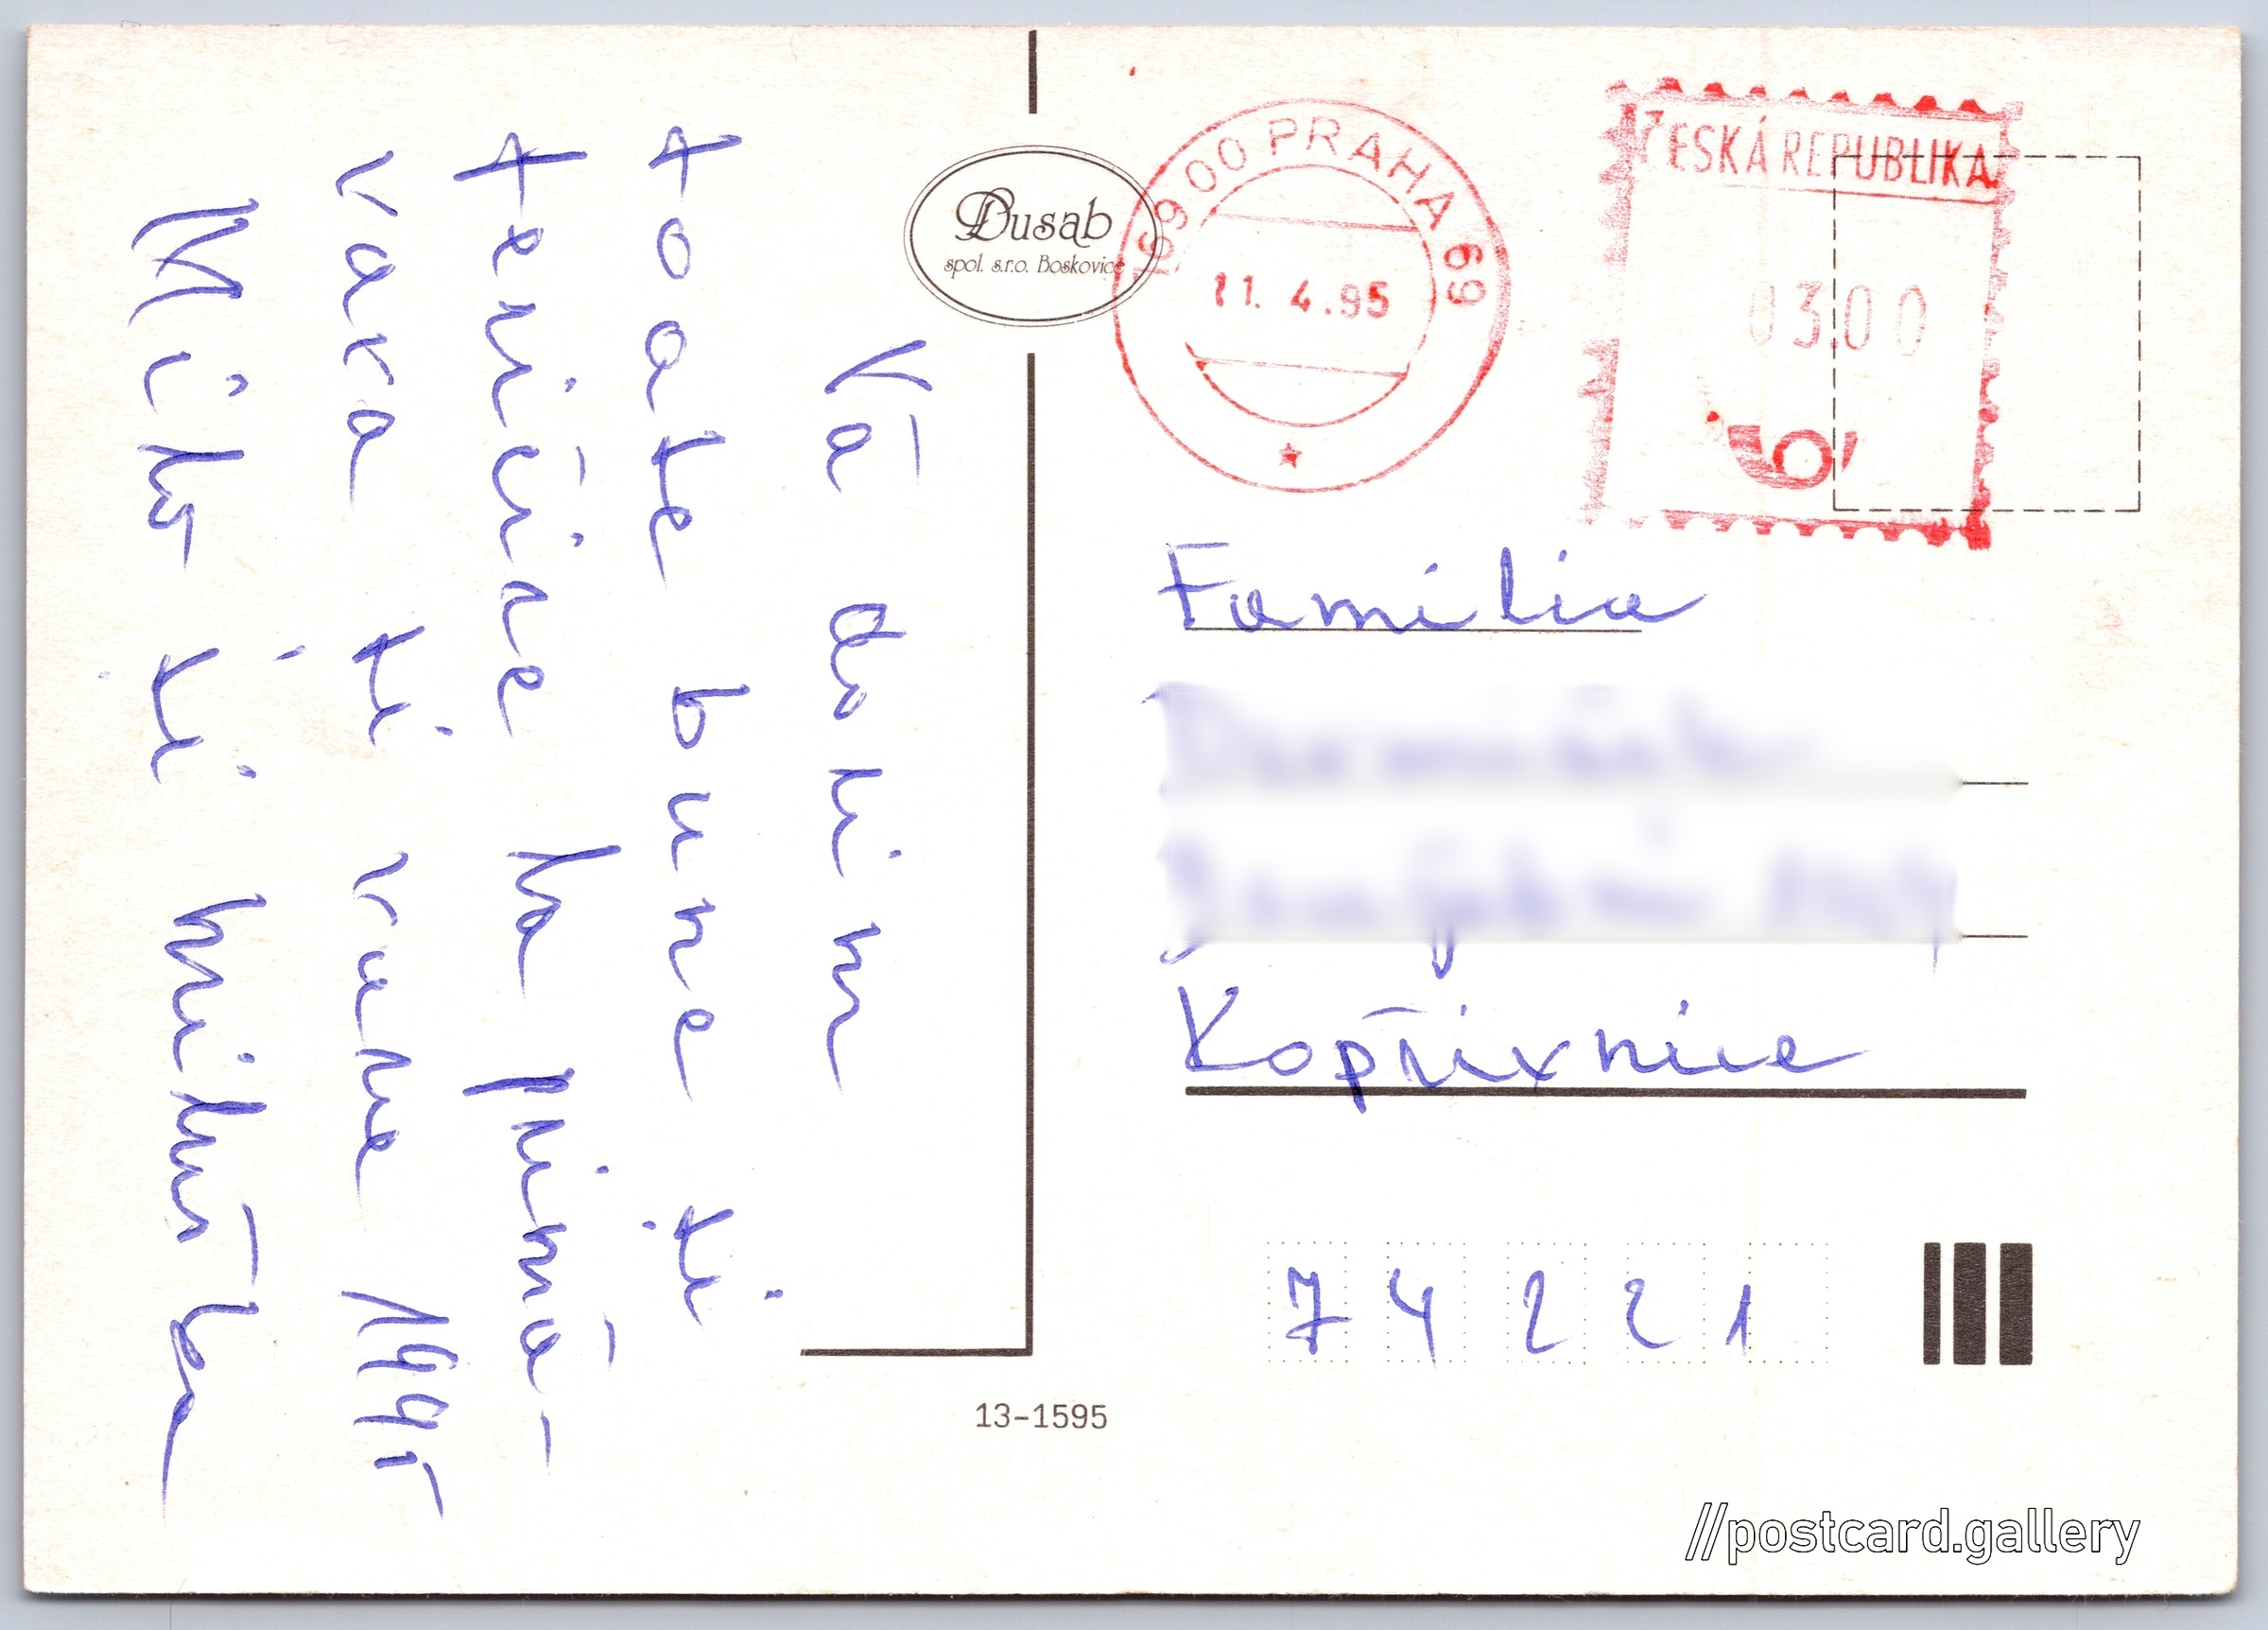 Vā dorim
toate bune și
fericire la primā-
vara și vara 1995
și
Dusab
spol. s.r.o. Boskovice
169 00 PRAHA 69
11. 4.95
ČESKÁ REPUBLIKA
03.00
Familia
Kopřivnice
74221
13-1595
//postcard.gallery